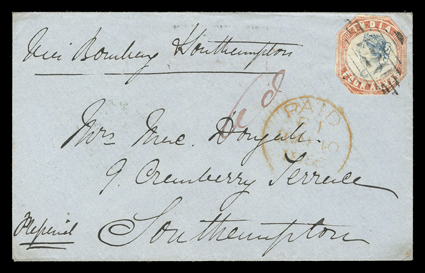 INDIA
Via Bombay Southampton
6d
PAID
Mrs Mac Dougall
9. Cranberry Terrace
Southampton